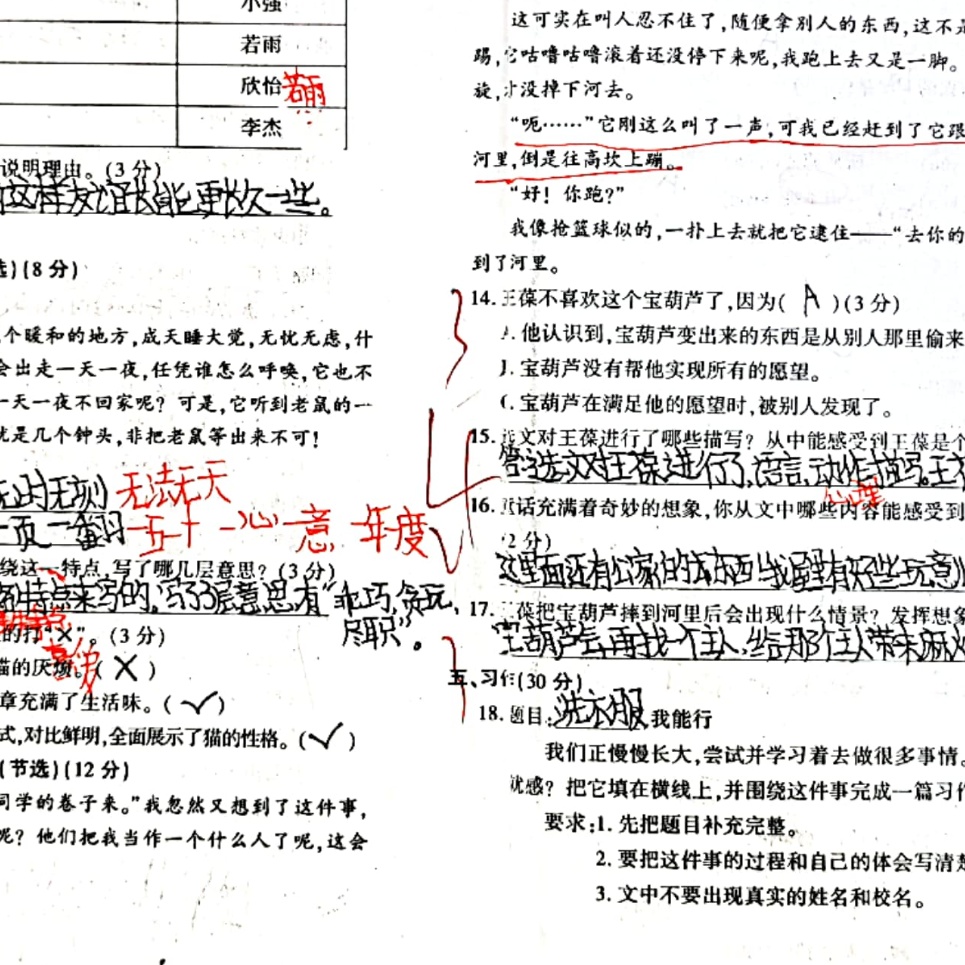 小强
若雨
欣怡 若雨
李杰
说明理由。(3分)
这样友谊长能更长久一些。
选)(8分)
个暖和的地方,成天睡大觉,无忧无虑,什
会出走一天一夜,任凭谁怎么呼唤,它也不
一天一夜不回家呢?可是,它听到老鼠的一
就是几个钟头,非把老鼠等出来不可!
无时无刻 无法无天
一页 五十 一心一意 年度
绕这一特点,写了哪几层意思?(3分)
特点来写的,写了3层意思有“乖巧,贪玩,
尽职”。
的打“×”。(3分)
猫的厌烦。(×) 喜爱
章充满了生活味。(✓)
式,对比鲜明,全面展示了猫的性格。(✓)
(节选)(12分)
同学的卷子来。”我忽然又想到了这件事,
呢?他们把我当作一个什么人了呢,这会
这可实在叫人忍不住了,随便拿别人的东西,这不是
踢,它咕噜咕噜滚着还没停下来呢,我跑上去又是一脚。
旋,才没掉下河去。
“呃……”它刚这么叫了一声,可我已经赶到了它跟
河里,倒是往高坎上蹦。
“好!你跑?”
我像抢篮球似的,一扑上去就把它逮住——“去你的
到了河里。
14.王葆不喜欢这个宝葫芦了,因为( A )(3分)
A.他认识到,宝葫芦变出来的东西是从别人那里偷来
B.宝葫芦没有帮他实现所有的愿望。
C.宝葫芦在满足他的愿望时,被别人发现了。
15.选文对王葆进行了哪些描写?从中能感受到王葆是个
答:选文对王葆进行了语言,动作描写。王葆
心理
16.童话充满着奇妙的想象,你从文中哪些内容能感受到
(2分)
这里面还有公家的东西 我屋里有好些玩意儿
17.王葆把宝葫芦摔到河里后会出现什么情景?发挥想象
宝葫芦会再找一个主人,给那个主人带来麻烦
五、习作(30分)
18.题目:洗衣服 我能行
我们正慢慢长大,尝试并学习着去做很多事情。
就感?把它填在横线上,并围绕这件事完成一篇习作
要求:1.先把题目补充完整。
2.要把这件事的过程和自己的体会写清楚
3.文中不要出现真实的姓名和校名。